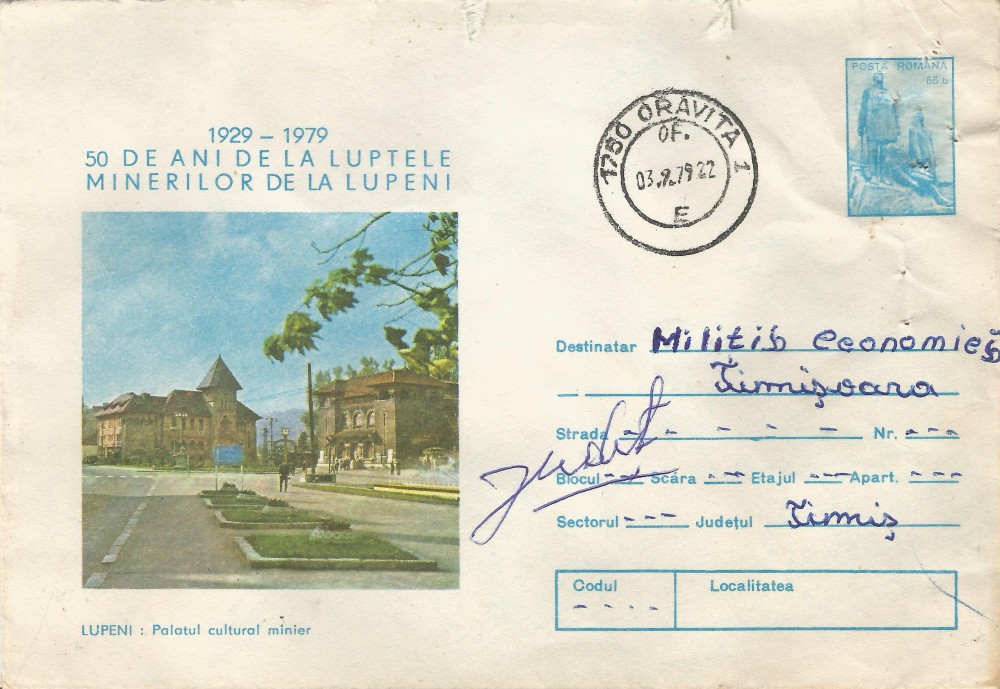 POSTA ROMÂNA
55 b
1750 ORAVITA 1
OF.
E
1929 – 1979
50 DE ANI DE LA LUPTELE
MINERILOR DE LA LUPENI
LUPENI : Palatul cultural minier
Destinatar Militia economică
Timișoara
Strada - - - - - Nr. - - -
judet
Blocul - - Scara - - Etajul - - Apart. - - -
Sectorul - - - Județul Timiș
Codul Localitatea
- - - -